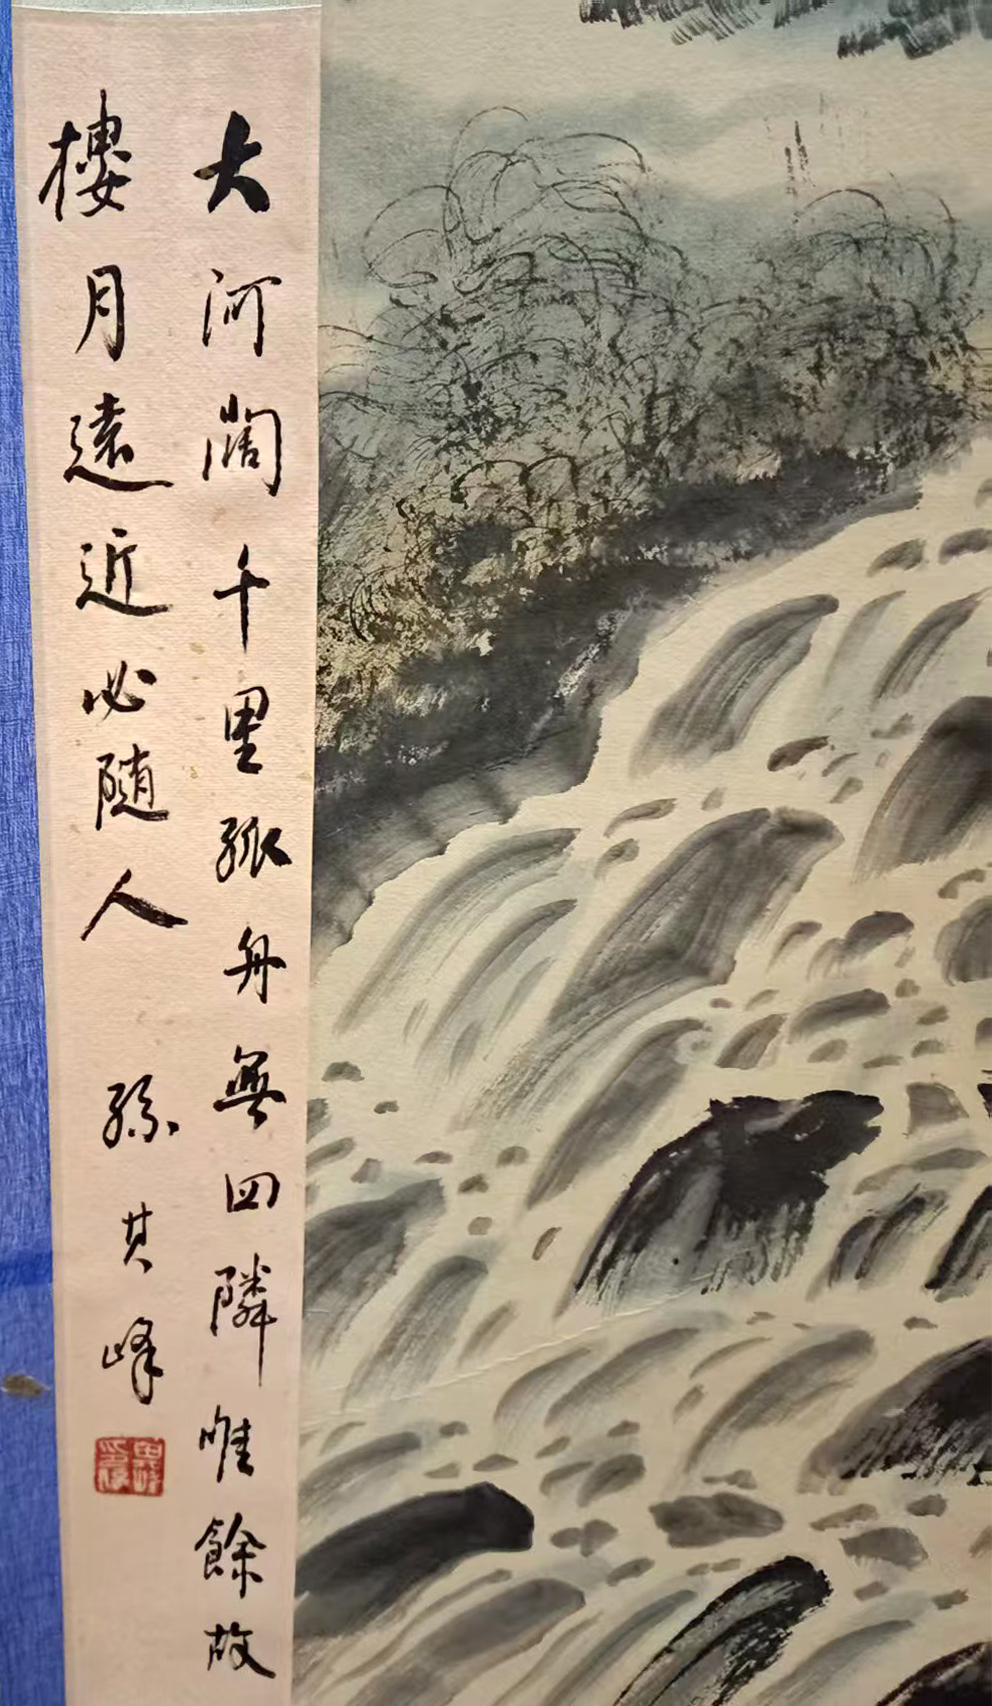 大河闊千里孤舟無四隣唯餘故
樓月遠近必随人 孫其峰